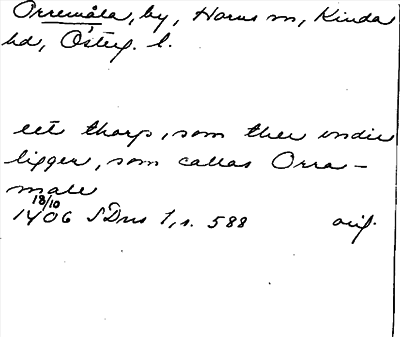 Orremåla, by, Horns sn, Kinda
hd, Österg. l.
ett thorp, som ther vndir
ligger, som callas Orra-
male
18/10
1406 SDns 1, s. 588 orig.